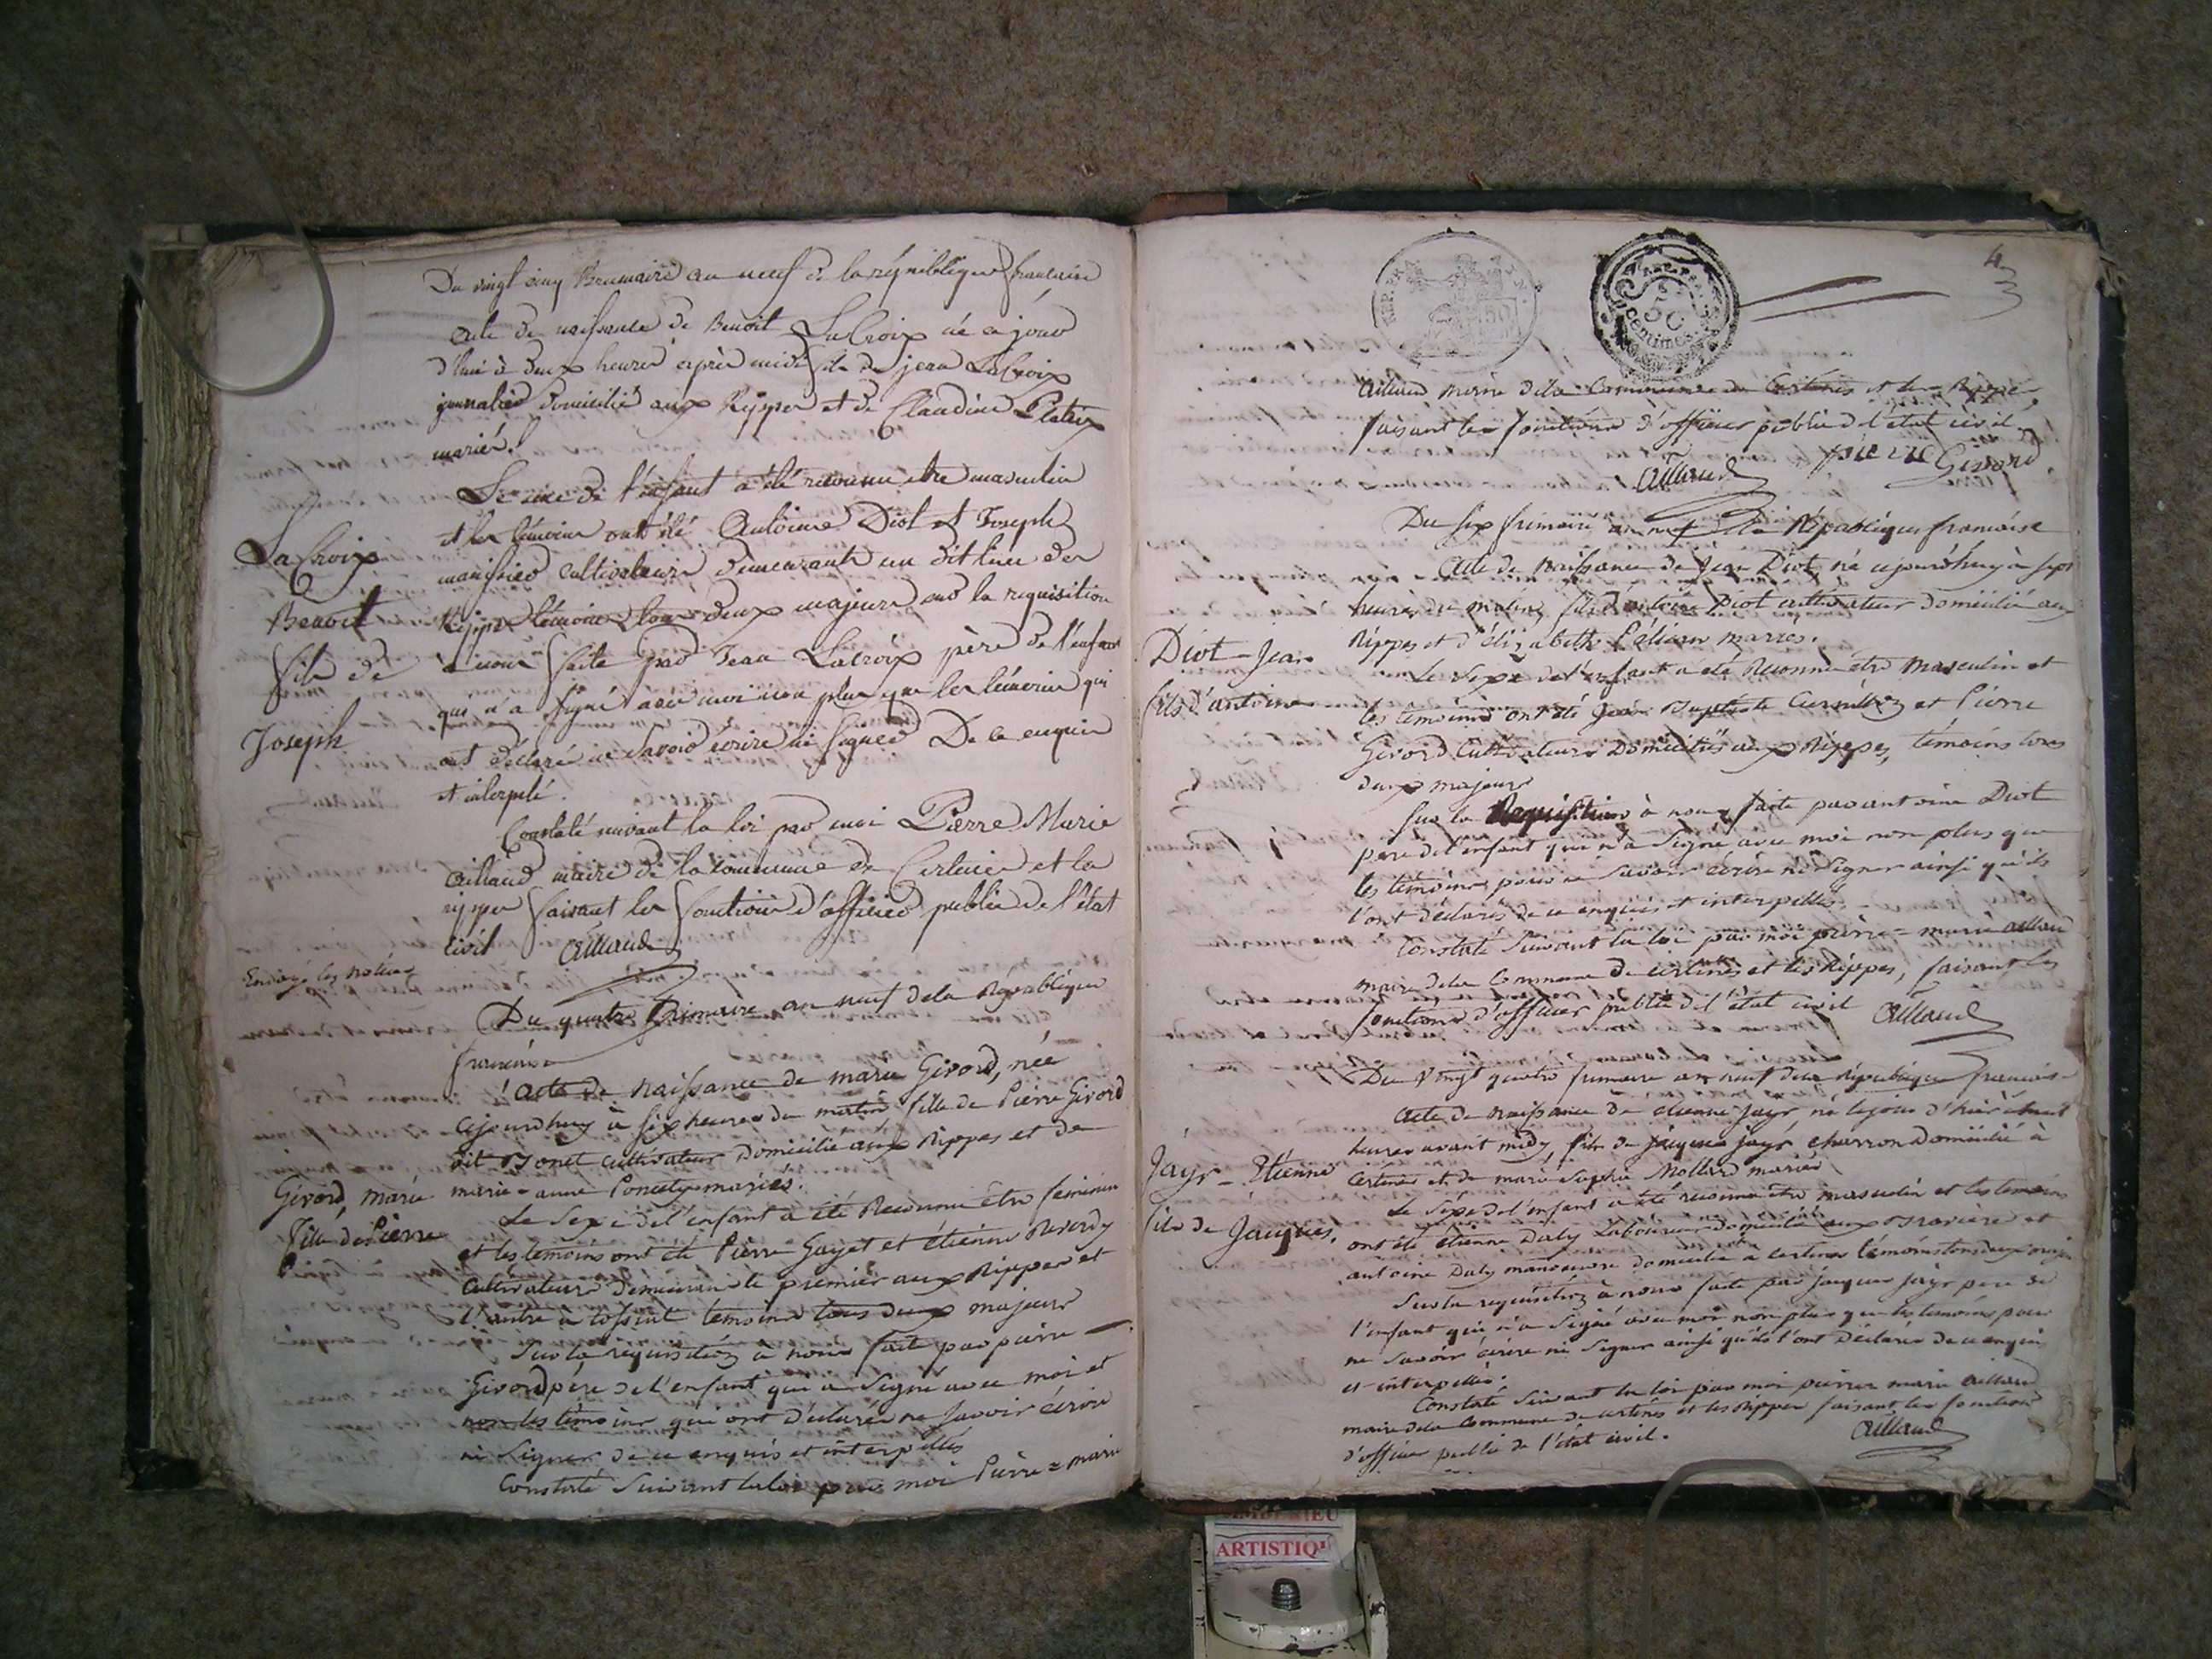 Du vingt cinq Brumaire an neuf de la république française
acte de naissance de Benoit LaCroix né ce jour
d'hui à deux heures après midi fils de jean LaCroix
journalier domicilié aux Rippes et de Claudine Platix
mariés.
Le sexe de l'enfant a été reconnu etre masculin
et les témoins ont été Antoine Diot et Joseph
cultivateurs demeurants au dit lieu des
Rippes témoins tous deux majeurs sur la requisition
à nous faite par Jean Lacroix père de l'enfant
qui n'a signé avec moi non plus que les témoins qui
ont déclaré ne savoir écrire ni signer De ce enquis
et interpelé.
Constaté suivant la loi par moi Pierre Marie
aillaud maire de la commune de Certines et les
rippes faisant les fonctions d'officier public de l'état
civil Aillaud
LaCroix
Benoit
fils de
Joseph
Envoyé les notices
Du quatre frimaire an neuf dela République
francaise
acte de naissance de marie Girord, née
cejourdhuy à six heures du matin fille de Pierre Girord
dit Bonet cultivateur domicilié aux Rippes et de
marie-anne Poncety mariés.
Girord, marie
fille de Pierre
Le Sexe del'enfant a été Reconnu être feminin
et les temoins ont été Pierre Gayet et étienne Reverdy
cultivateurs demeurant le premier aux Rippes et
l'autre à tossiat temoins tous deux majeurs
Sur la requisition à nous faite par pierre
Girord père de l'enfant qui a Signé avec moi et
non les témoins qui ont déclarés ne savoir écrire
ni signer de ce enquis et interpellés
Constaté Suivant la loi par moi Pierre = marie
4
REP. FRA.
50
centimes
aillaud maire dela Commune de Certines et les Rippes
faisant les fonctions d'officier public d l'état civil.
Aillaud pierre Girord
Du six frimaire an neuf dela République francaise
Acte de Naissance de Jean Diot né cejourd'huy à sept
heures du matin, fils d'antoine Diot cultivateur domicilié aux
Rippes et d'élizabeth Pélican mariés.
Diot - Jean
fils d'antoine
Le sexe de l'enfant a été Reconnu être masculin et
les témoins ont été Jean Baptiste et Pierre
Girord Cultivateurs Domiciliés aux Rippes, témoins tous
deux majeurs
Sur la Requisition à nous faite par antoine Diot
pere del'enfant qui n'a Signé avec moi non plus que
les témoins pour ne Savoir écrire ni Signer ainsi qu'ils
l'ont déclarés de ce enquis et interpellés.
Constaté Suivant la loi par moi pierre = marie aillaud
maire dela Commune de certines et les Rippes, faisant les
fonctions d'officier public de l'état civil Aillaud
Du vingt quatre frimaire an neuf dela République francaise
Acte de naissance de etienne jayr, né le jour d'hier à huit
heures avant midy, fils de jacques jayr, charron domicilié à
Certines et de marie Sophie Mollard mariés
Jayr - Etienne
fils de Jacques.
Le Sexe del'enfant a été reconnu être masculin et les temoins
ont été étienne Daly Laboureur domicilié aux et
antoine Daly manoeuvre domicilié a certines témoins tous deux maj
Sur la requisition à nous faite par jacques jayr pere de
l'enfant qui n'a Signé avec moi non plus que les temoins pour
ne savoir écrire ni Signer ainsi qu'ils l'ont déclarés de ce enquis
et interpellés.
Constaté Suivant la loi par moi pierre marie aillaud
maire dela Commune de certines et les Rippes faisant les fonctions
d'officier public de l'état civil. Aillaud
ARTISTIQ